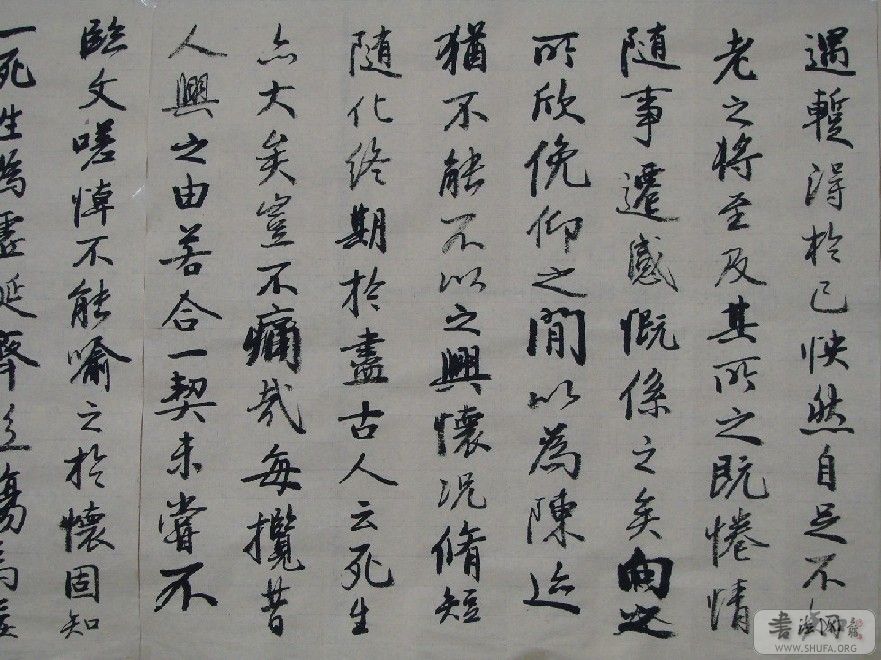 遇蹔得於己怏然自足不知
老之將至及其所之既惓情
隨事遷感慨係之矣向之
所欣俛仰之閒以為陳迹
猶不能不以之興懷况脩短
隨化終期於盡古人云死生
亦大矣豈不痛哉每攬昔
人興之由若合一契未嘗不
臨文嗟悼不能喻之於懷固知
一死生為虛誕齊彭殤為妄
書法网
WWW.SHUFA.ORG